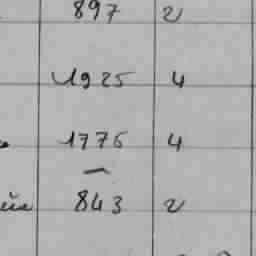 897 2
1925 4
1776 4
843 2